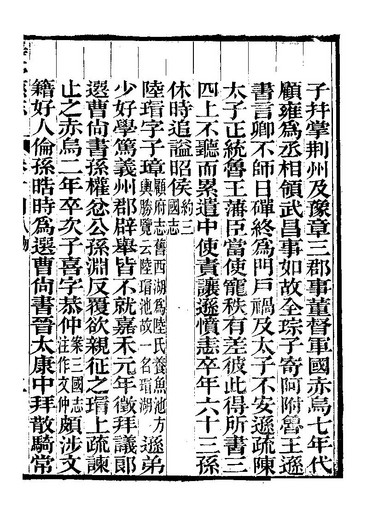 子幷掌荆州及豫章三郡事董督軍國赤烏七年代
顧雍爲丞相領武昌事如故全琮子寄阿附魯王遜
書言卿不師日磾終爲門戶禍及太子不安遜疏陳
太子正統魯王藩臣當使寵秩有差彼此得所書三
四上不聽而累遣中使責讓遜憤恚卒年六十三孫
休時追謚昭侯約三國志
陸瑁字子璋顧府志舊西湖爲陸氏養魚池方輿勝覽云陸瑁池故一名瑁湖遜弟
少好學篤義州郡辟舉皆不就嘉禾元年徵拜議郎
選曹尙書孫權忿公孫淵反覆欲親征之瑁上疏諫
止之赤烏二年卒次子喜字恭仲案三國志注作文仲頗涉文
籍好人倫孫晧時爲選曹尙書晉太康中拜散騎常